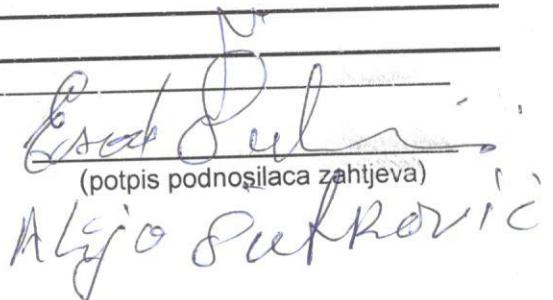 Esad
(potpis podnosilaca zahtjeva)
Alijo Šutković